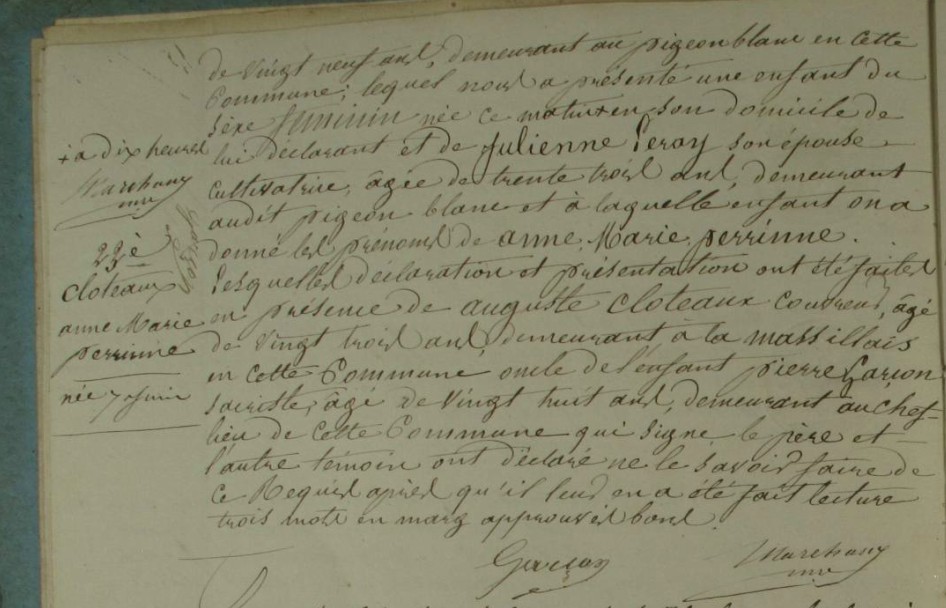 de Vingt neuf ans, demeurant au pigeon blanc en Cette
Commune; lequel nous a présenté une enfant du
Sexe feminin née ce matin + en son domicile de
lui déclarant et de Julienne Peray son épouse
Cultivatrice, âgée de trente trois ans, demeurant
audit pigeon blanc et à laquelle enfant on a
donné les prénoms de anne, Marie, perrinne.
Lesquelles déclaration et présentation ont été faites
en présence de auguste Cloteaux Couvreur, âgé
de Vingt trois ans, demeurant à la massillais
en Cette Commune oncle de l'enfant pierre Garçon
Sacriste, âgé de Vingt huit ans, demeurant au Chef-
lieu de Cette Commune qui Signe, le père et
l'autre témoin ont déclaré ne le Savoir faire de
Ce Requis après qu'il leur en a été fait lecture
trois mots en marg approuvés bons.
Garçon
Marchany
+ a dix heures
Marchany
Garçon
23è
Cloteaux
anne Marie
perrinne
née 7 Juin